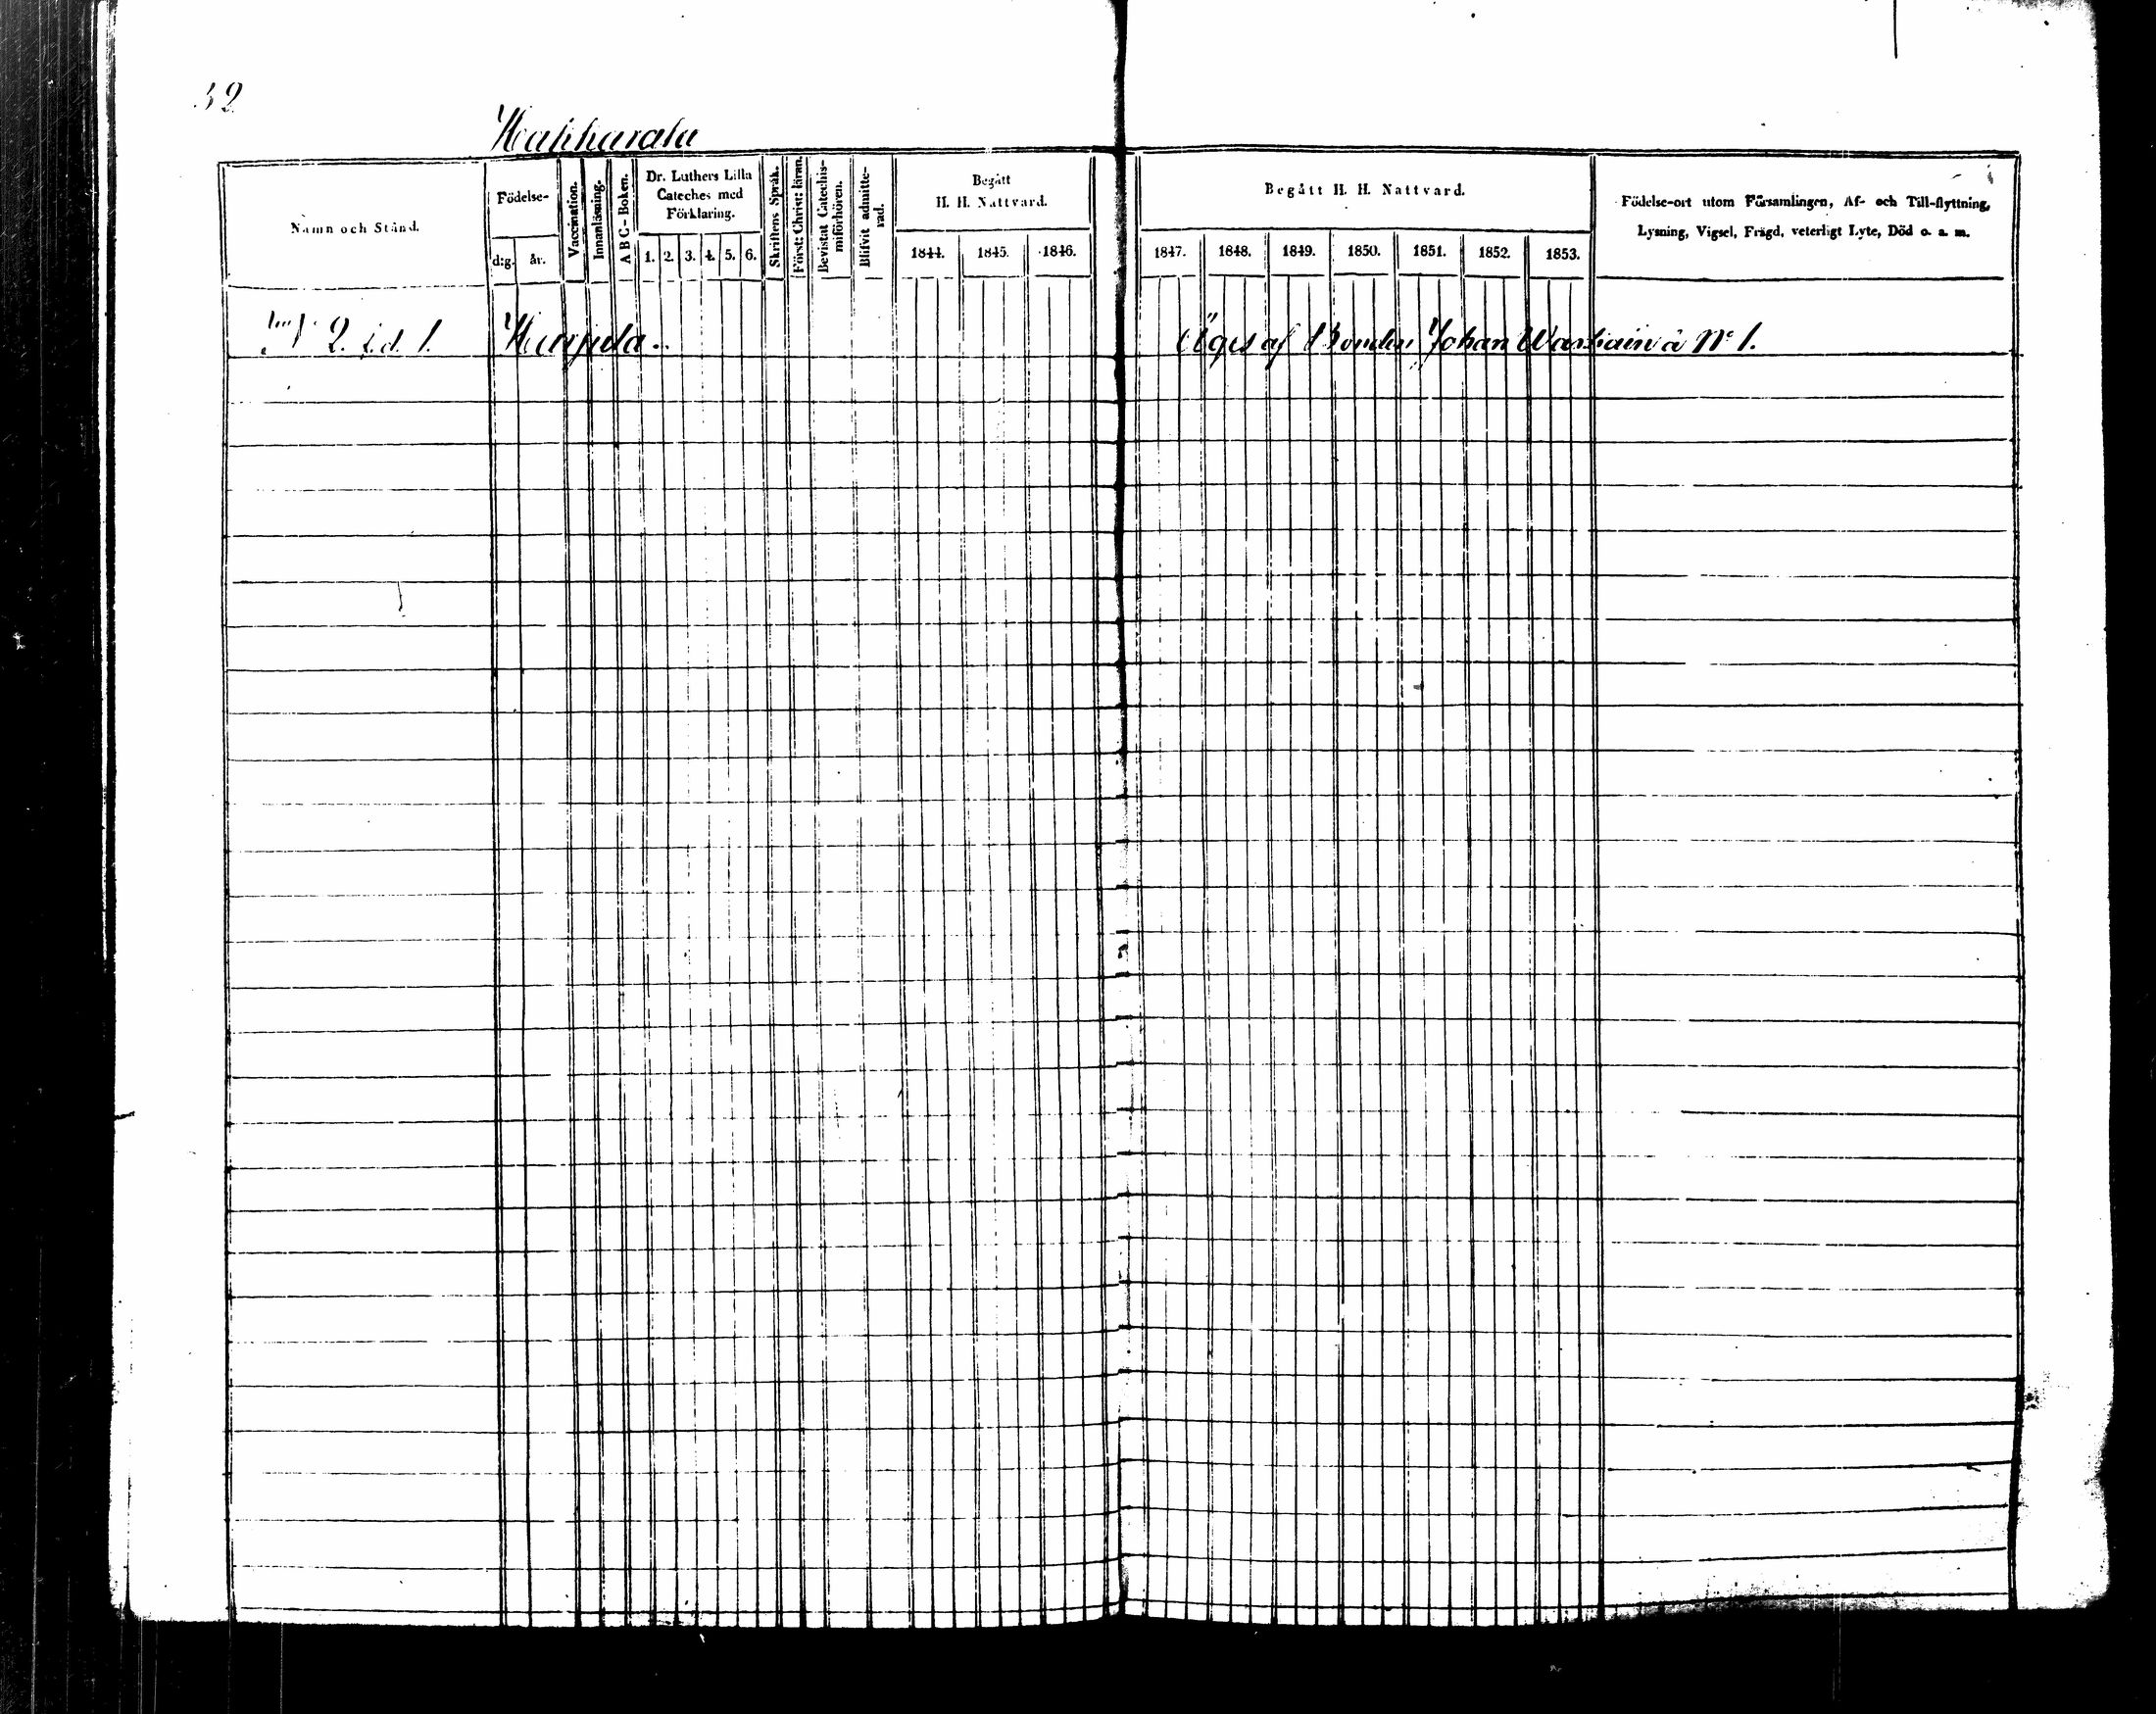 32
Hakkarala
Namn och Stånd.
Födelse-
d:g
år.
Vaccination.
Innanläsning.
A B C.-Boken.
Dr. Luthers Lilla
Cateches med
Förklaring.
1. 2. 3. 4. 5. 6.
Skriftens Språk.
Först: Christ: läran.
Bevistat Catechis-
miförhören.
Blifvit admitte-
rad.
Begått
H. H. Nattvard.
1844. 1845. 1846.
Begått H. H. Nattvard.
1847. 1848. 1849. 1850. 1851. 1852. 1853.
Födelse-ort utom Församlingen, Af- och Till-flyttning,
Lysning, Vigsel, Frägd, veterligt Lyte, Död o. a. m.
N 2. i.d. 1. Harjula. Äges af Bonden Johan å No 1.